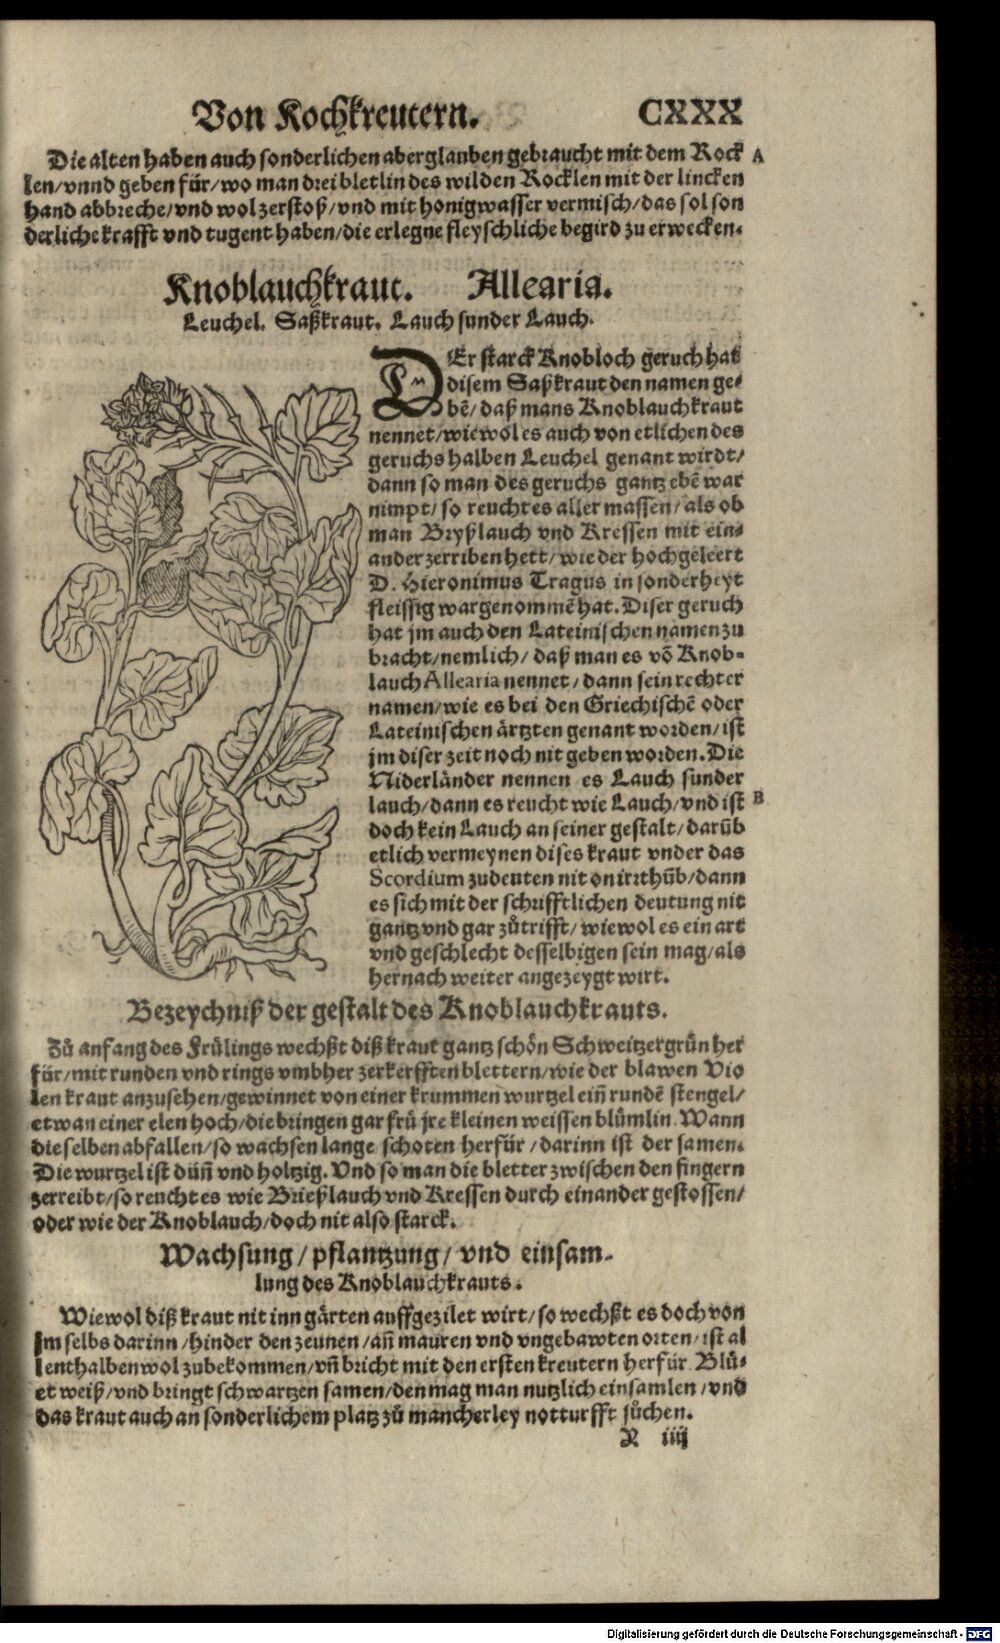 Von Kochkreutern. CXXX
Die alten haben auch sonderlichen aberglauben gebraucht mit dem Rock A
len/vnnd geben für/wo man drei bletlin des wilden Rocklen mit der lincken
hand abbreche/vnd wol zerstoß/vnd mit honigwasser vermisch/das sol son
derliche krafft vnd tugent haben/die erlegne fleyschliche begird zu erwecken.
Knoblauchkraut. Allearia.
Leuchel. Saßkraut. Lauch sunder Lauch.
DEr starck Knobloch geruch hat
disem Saßkraut den namen ge-
bē/daß mans Knoblauchkraut
nennet/wiewol es auch von etlichen des
geruchs halben Leuchel genant wirdt/
dann so man des geruchs gantz ebē war
nimpt/so reucht es aller massen/als ob
man Bryßlauch vnd Kressen mit ein-
ander zerriben hett/wie der hochgeleert
D. Hieronimus Tragus in sonderheyt
fleissig wargenommē hat. Diser geruch
hat jm auch den Lateinischen namen zu
bracht/nemlich/daß man es vō Knob-
lauch Allearia nennet/dann sein rechter
namen/wie es bei den Griechischē oder
Lateinischen ärtzten genant worden/ist
jm diser zeit noch nit geben worden. Die
Niderländer nennen es Lauch sunder
lauch/dann es reucht wie Lauch/vnd ist B
doch kein Lauch an seiner gestalt/darūb
etlich vermeynen dises kraut vnder das
Scordium zudeuten nit on irrthūb/dann
es sich mit der schrifftlichen deutung nit
gantz vnd gar zůtrifft/wiewol es ein art
vnd geschlecht desselbigen sein mag/als
hernach weiter angezeygt wirt.
Bezeychniß der gestalt des Knoblauchkrauts.
Zů anfang des Frülings wechßt diß kraut gantz schön Schweitzergrün her
für/mit runden vnd rings vmbher zerkerfften blettern/wie der blawen Vio
len kraut anzusehen/gewinnet von einer krummen wurtzel ein̄ rundē stengel/
etwan einer elen hoch/die bringen gar frü jre kleinen weissen blümlin. Wann
dieselben abfallen/so wachsen lange schoten herfür/darinn ist der samen.
Die wurtzel ist dün̄ vnd holtzig. Vnd so man die bletter zwischen den fingern
zerreibt/so reucht es wie Brießlauch vnd Kressen durch einander gestossen/
oder wie der Knoblauch/doch nit also starck.
Wachsung/pflantzung/vnd einsam-
lung des Knoblauchkrauts.
Wiewol diß kraut nit inn gärten auffgezilet wirt/so wechßt es doch von
jm selbs darinn/hinder den zeunen/an̄ mauren vnd vngebawten orten/ist al
lenthalben wol zubekommen/vn̄ bricht mit den ersten kreutern herfür. Blü-
et weiß/vnd bringt schwartzen samen/den mag man nutzlich einsamlen/vnd
das kraut auch an sonderlichem platz zů mancherley notturfft sůchen.
R iiij
Digitalisierung gefördert durch die Deutsche Forschungsgemeinschaft - DFG